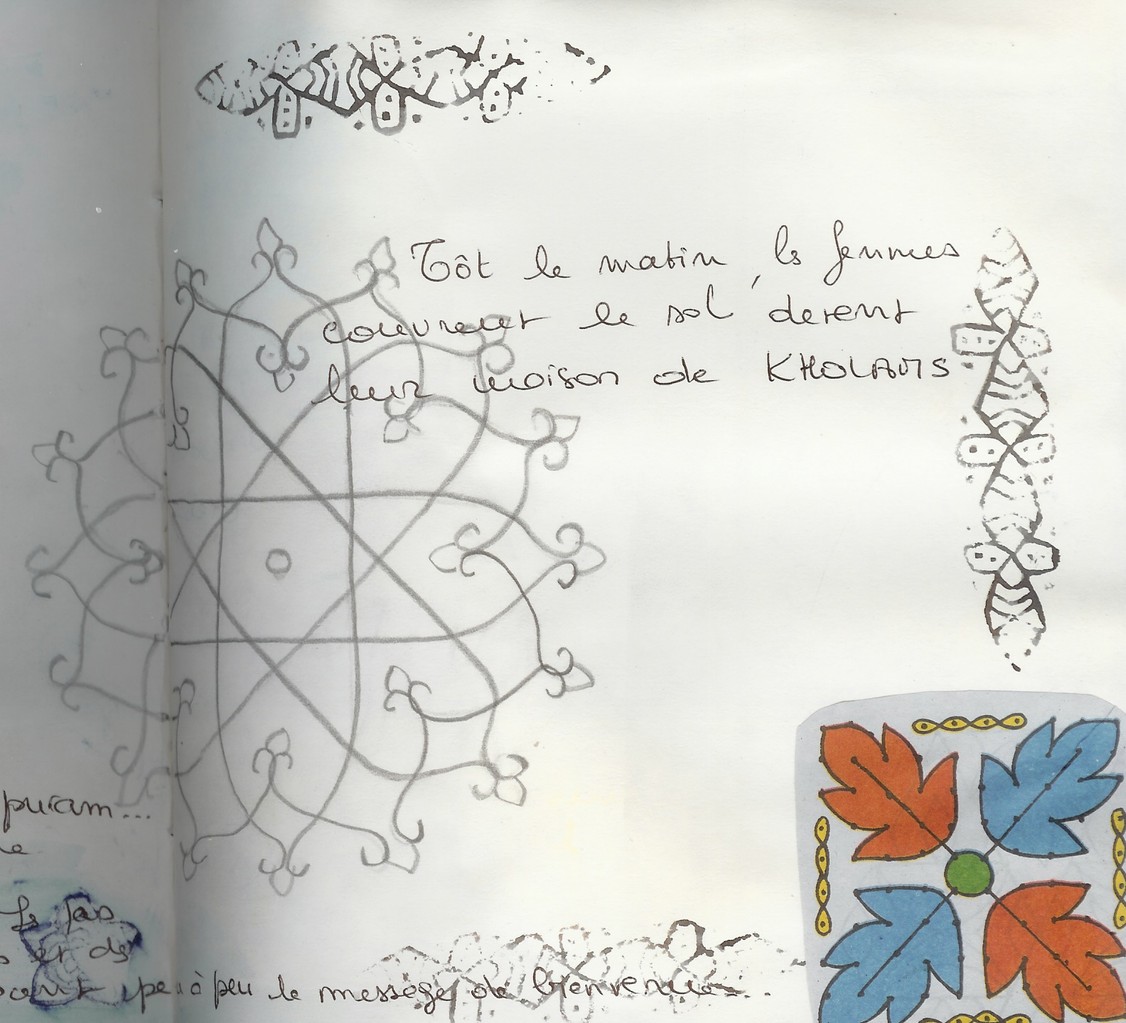 Tôt le matin, les femmes
couvrent le sol devant
leur maison de KHOLAMS
puram...
peu à peu le message de bienvenue...